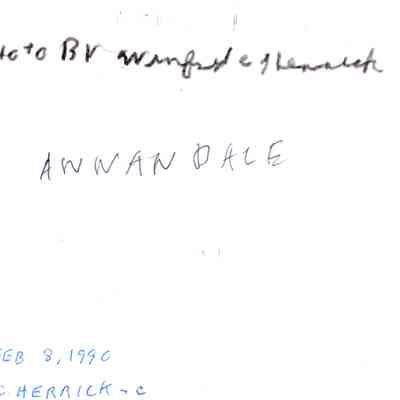 oto BY Winfred C Herrick
ANNANDALE
FEB 8, 1990
C. HERRICK - C